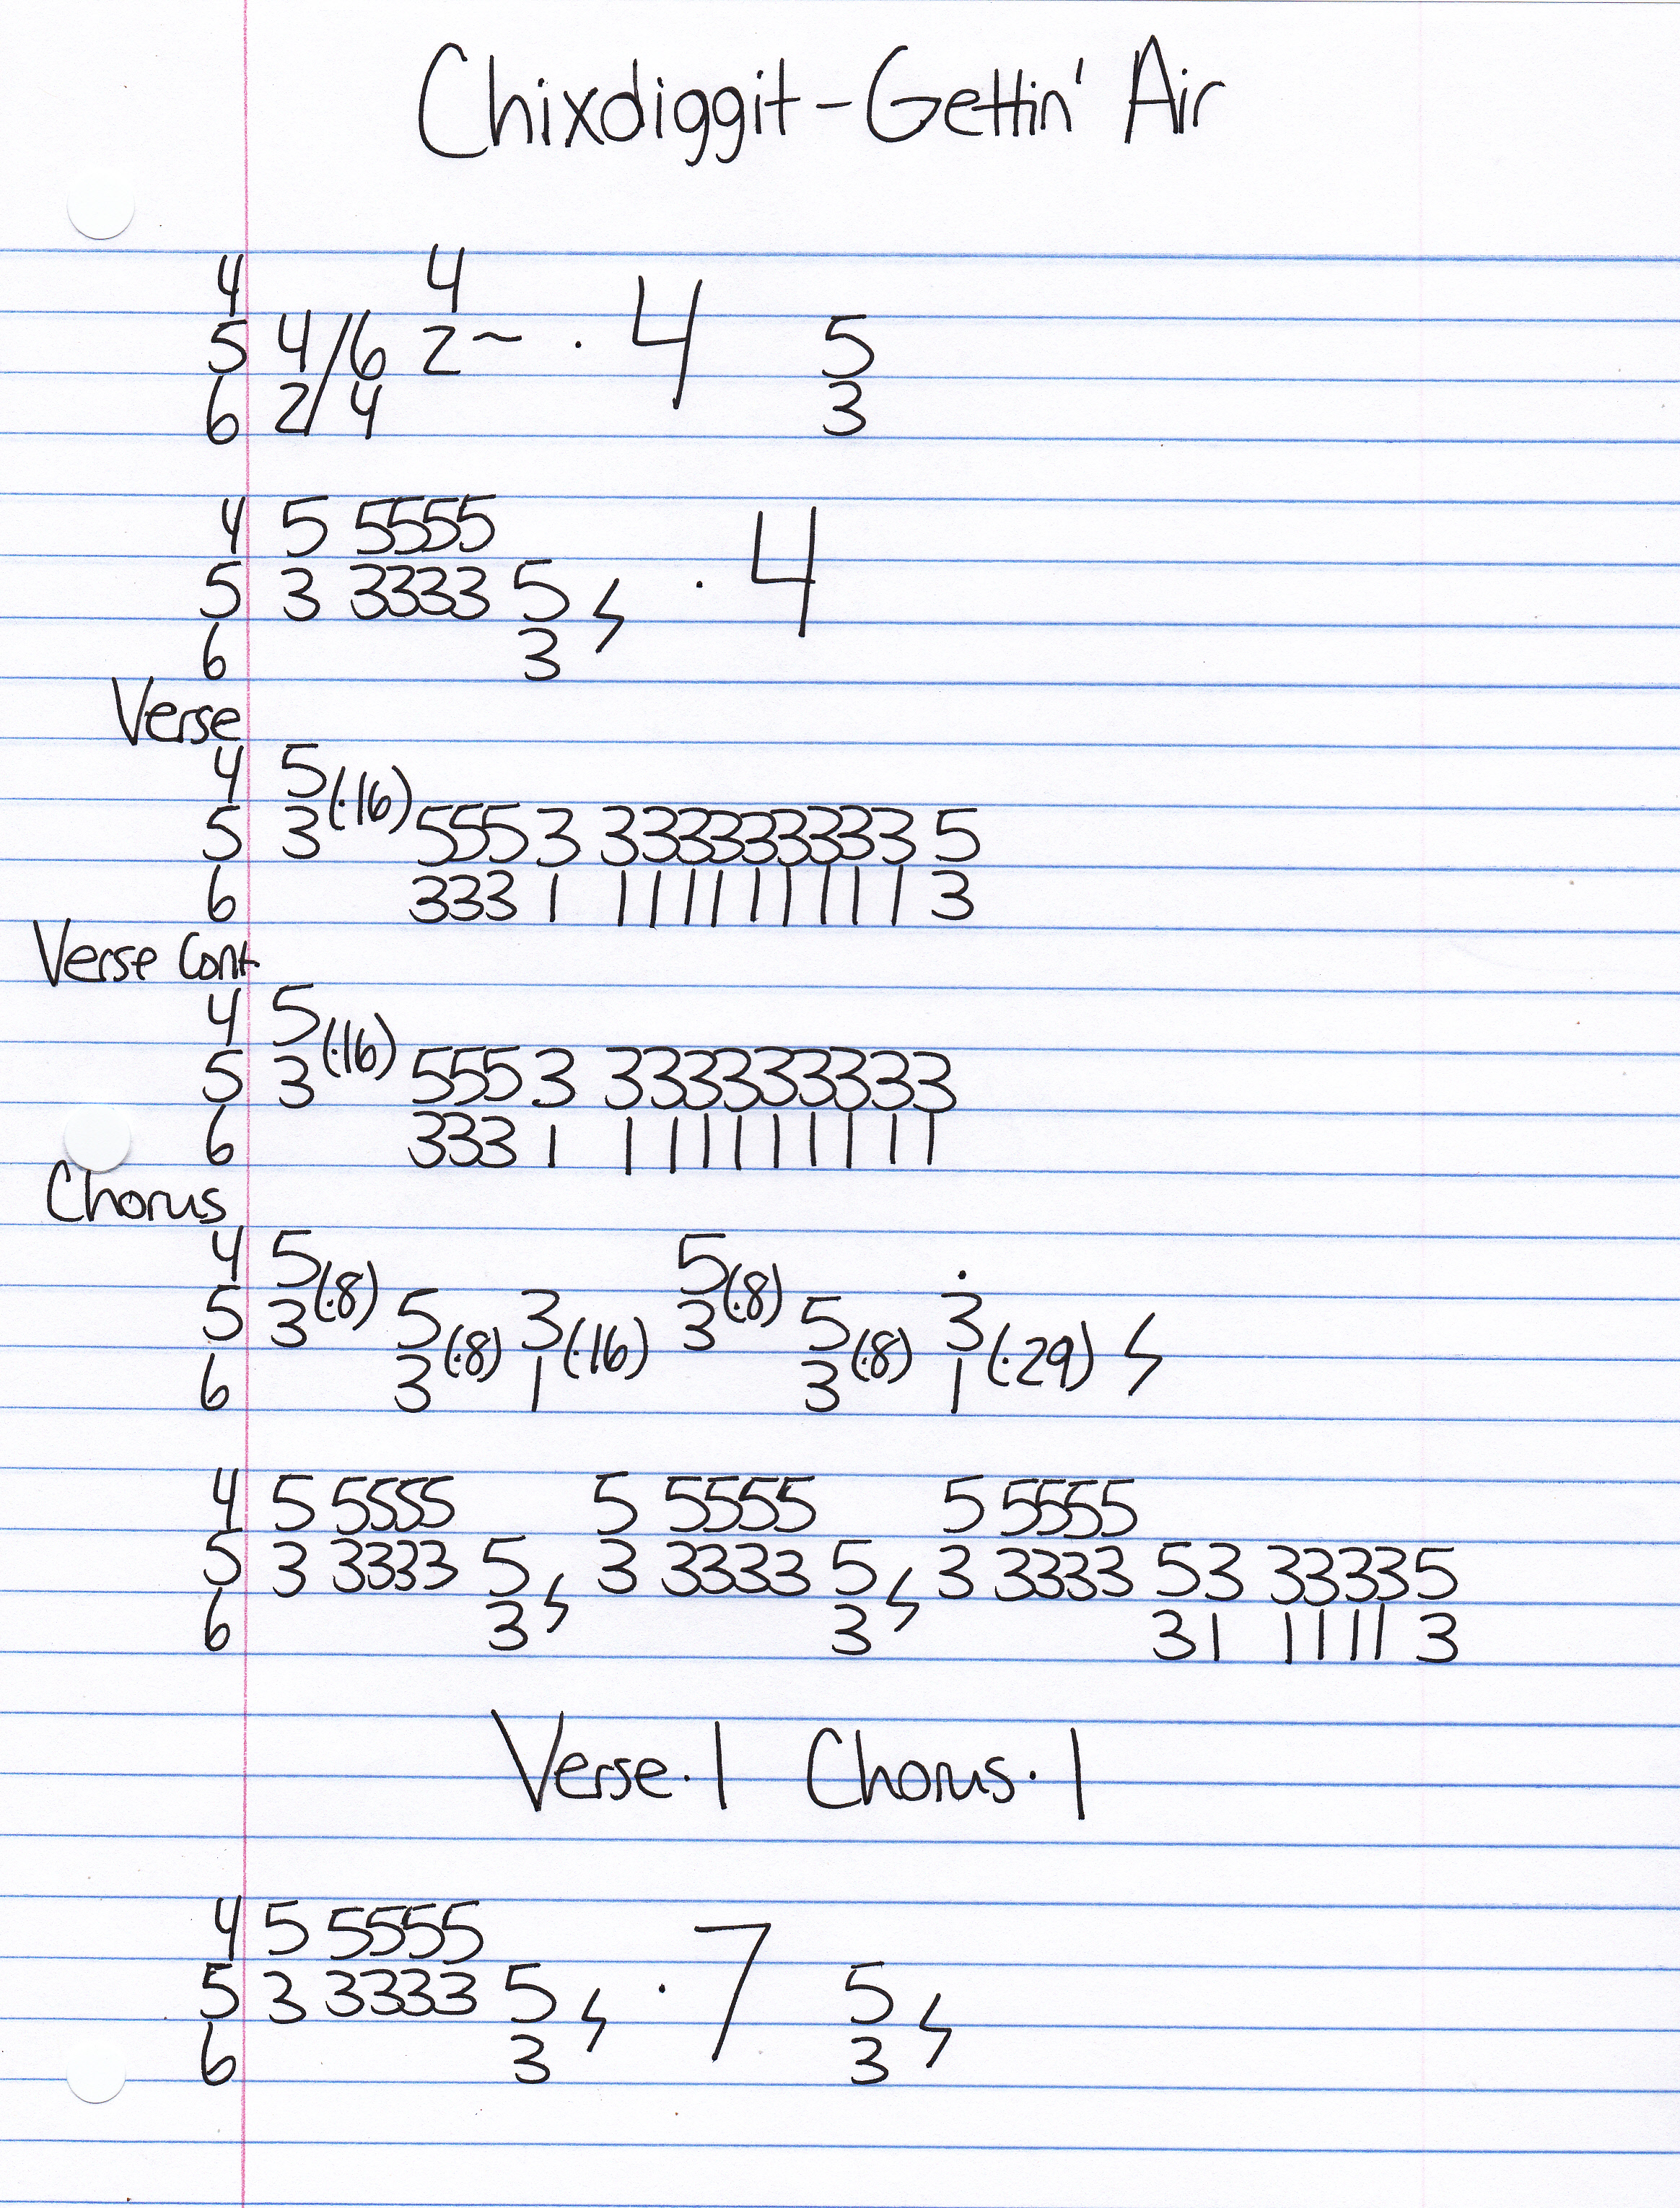 Chixdiggit - Gettin' Air
4 4
5 4/6 2~ · 4 5
6 2/4 3
4 5 5555
5 3 3333 5 ϟ · 4
6 3
Verse
4 5
5 3 (·16) 555 3 333333333 5
6 333 1 111111111 3
Verse Cont.
4 5
5 3 (·16) 555 3 333333333
6 333 1 111111111
Chorus
4 5 5
5 3 (·8) 5 3 3 (·8) 5 3
6 3 (·8) 1 (·16) 3 (·8) 1 (·29) ϟ
4 5 5555 5 5555 5 5555
5 3 3333 5 ϟ 3 3333 5 ϟ 3 3333 53 33335
6 3 3 31 1111 3
Verse · 1 Chorus · 1
4 5 5555
5 3 3333 5 ϟ · 7 5 ϟ
6 3 3